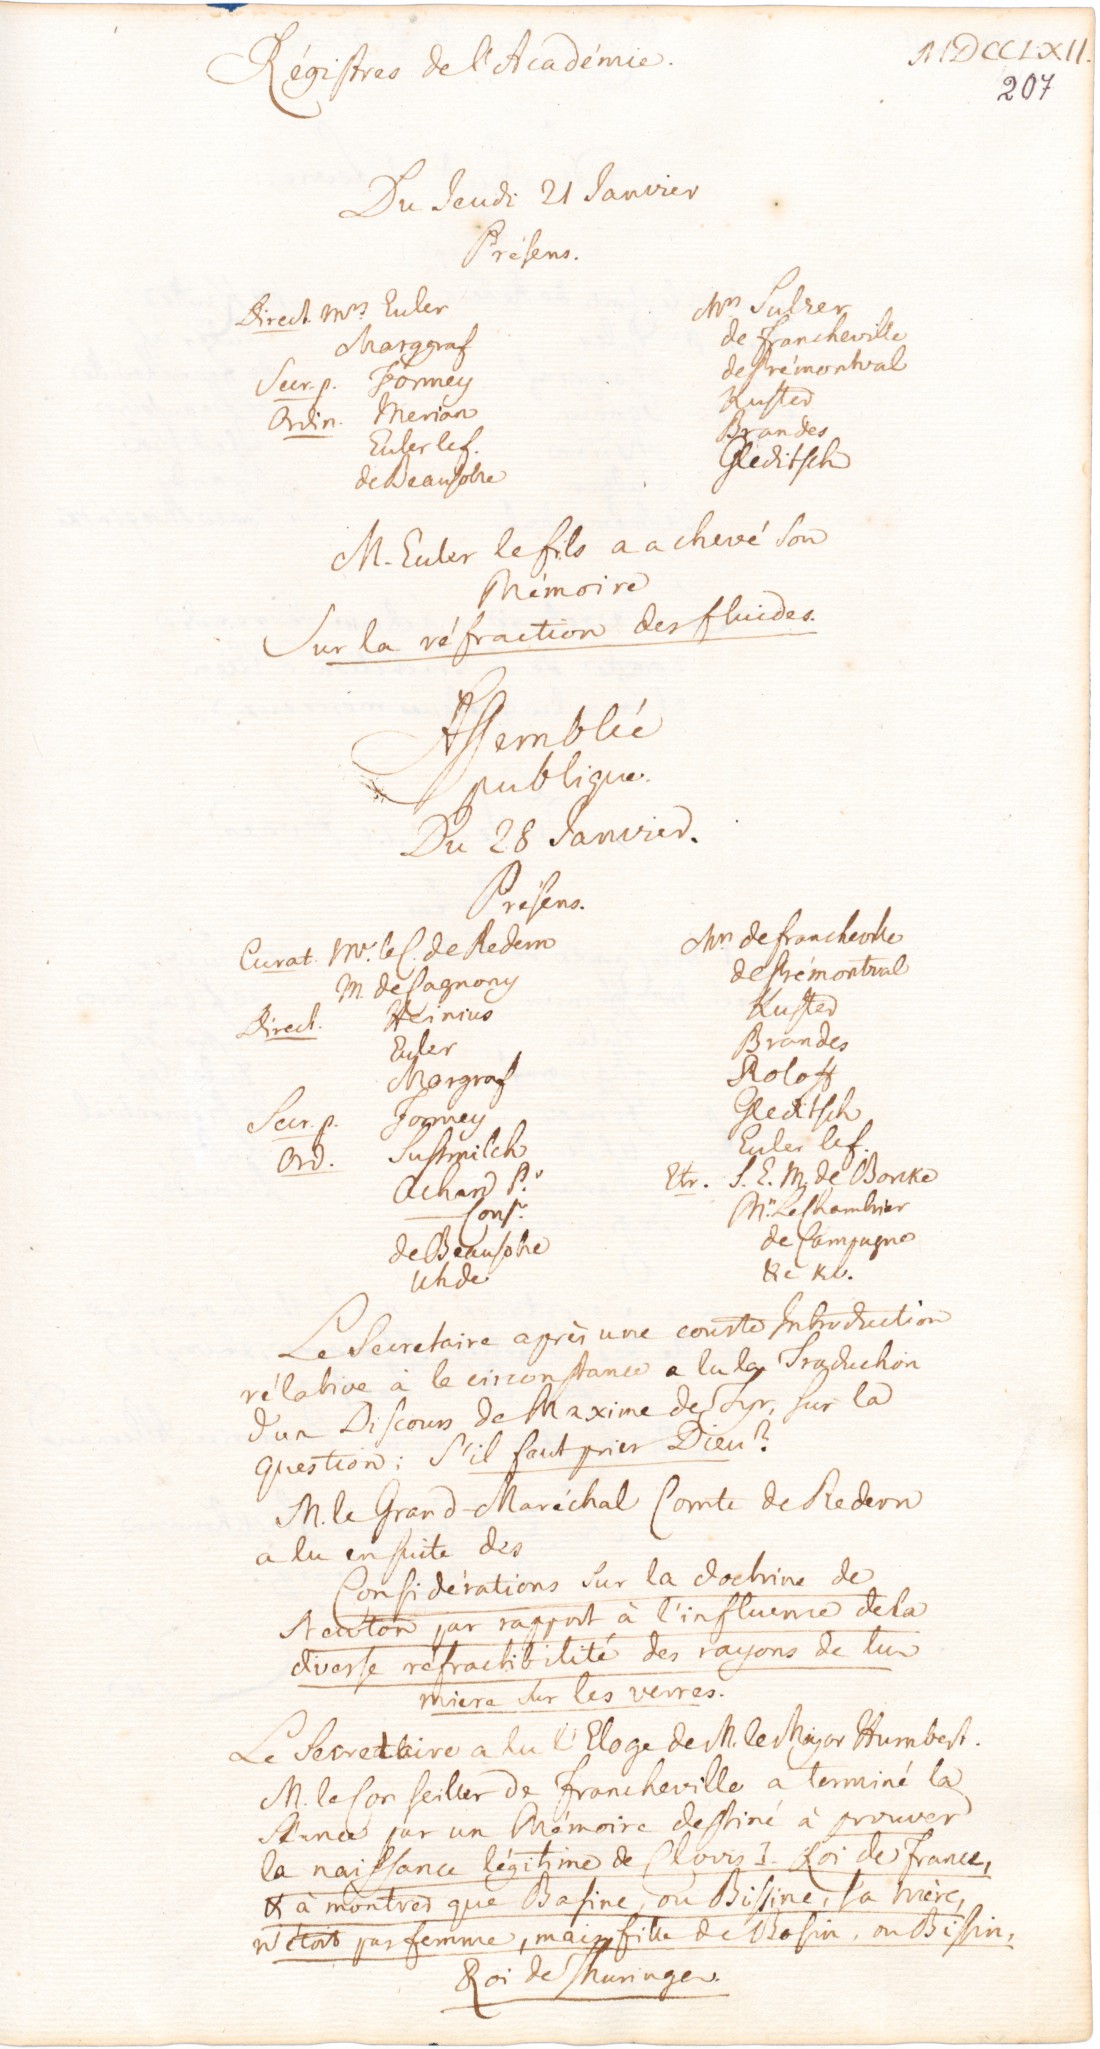 Régistres de l'Académie.
MDCCLXII.
207
Du Jeudi 21 Janvier
Présens.
Direct. Mrs Euler
Marggraf
Secr. p. Formey
Ordin. Merian
Euler le f.
de Beausobre
Mrs Sulzer
de Francheville
de Prémontval
Kuster
Brandes
Gleditsch
M. Euler le fils a achevé son
Mémoire
Sur la réfraction des fluides.
Assemblée
publique.
Du 28 Janvier.
Présens.
Curat. Mr. le C. de Redern
M. de Cagnony
Direct. Heinius
Euler
Margraf
Secr. p. Formey
Ord. Susmilch
Achard P.r
— Consr.
de Beausobre
Uhde
Mrs de Francheville
de Prémontval
Kuster
Brandes
Roloff
Gleditsch
Euler le f.
Etr. S. E. M. de Borcke
Mrs Le Chambrier
de Campagne
&c &c.
Le Secretaire après une courte Introduction
rélative à la circonstance a lu la Traduction
d'un Discours de Maxime de Tyr, sur la
question: S'il faut prier Dieu?
M. le Grand-Maréchal Comte de Redern
a lu ensuite des
Considérations sur la doctrine de
Newton par rapport à l'influence de la
diverse réfractibilité des rayons de lu
miere sur les verres.
Le Secretaire a lu l'Eloge de M. le Major Humbert.
M. le Conseiller de Francheville a terminé la
Séance par un Mémoire destiné à prouver
la naissance légitime de Clovis I. Roi de France,
& à montrer que Basine, ou Bissine, sa mère,
n'étoit pas femme, mais fille de Basin, ou Bissin,
Roi de Thuringe.